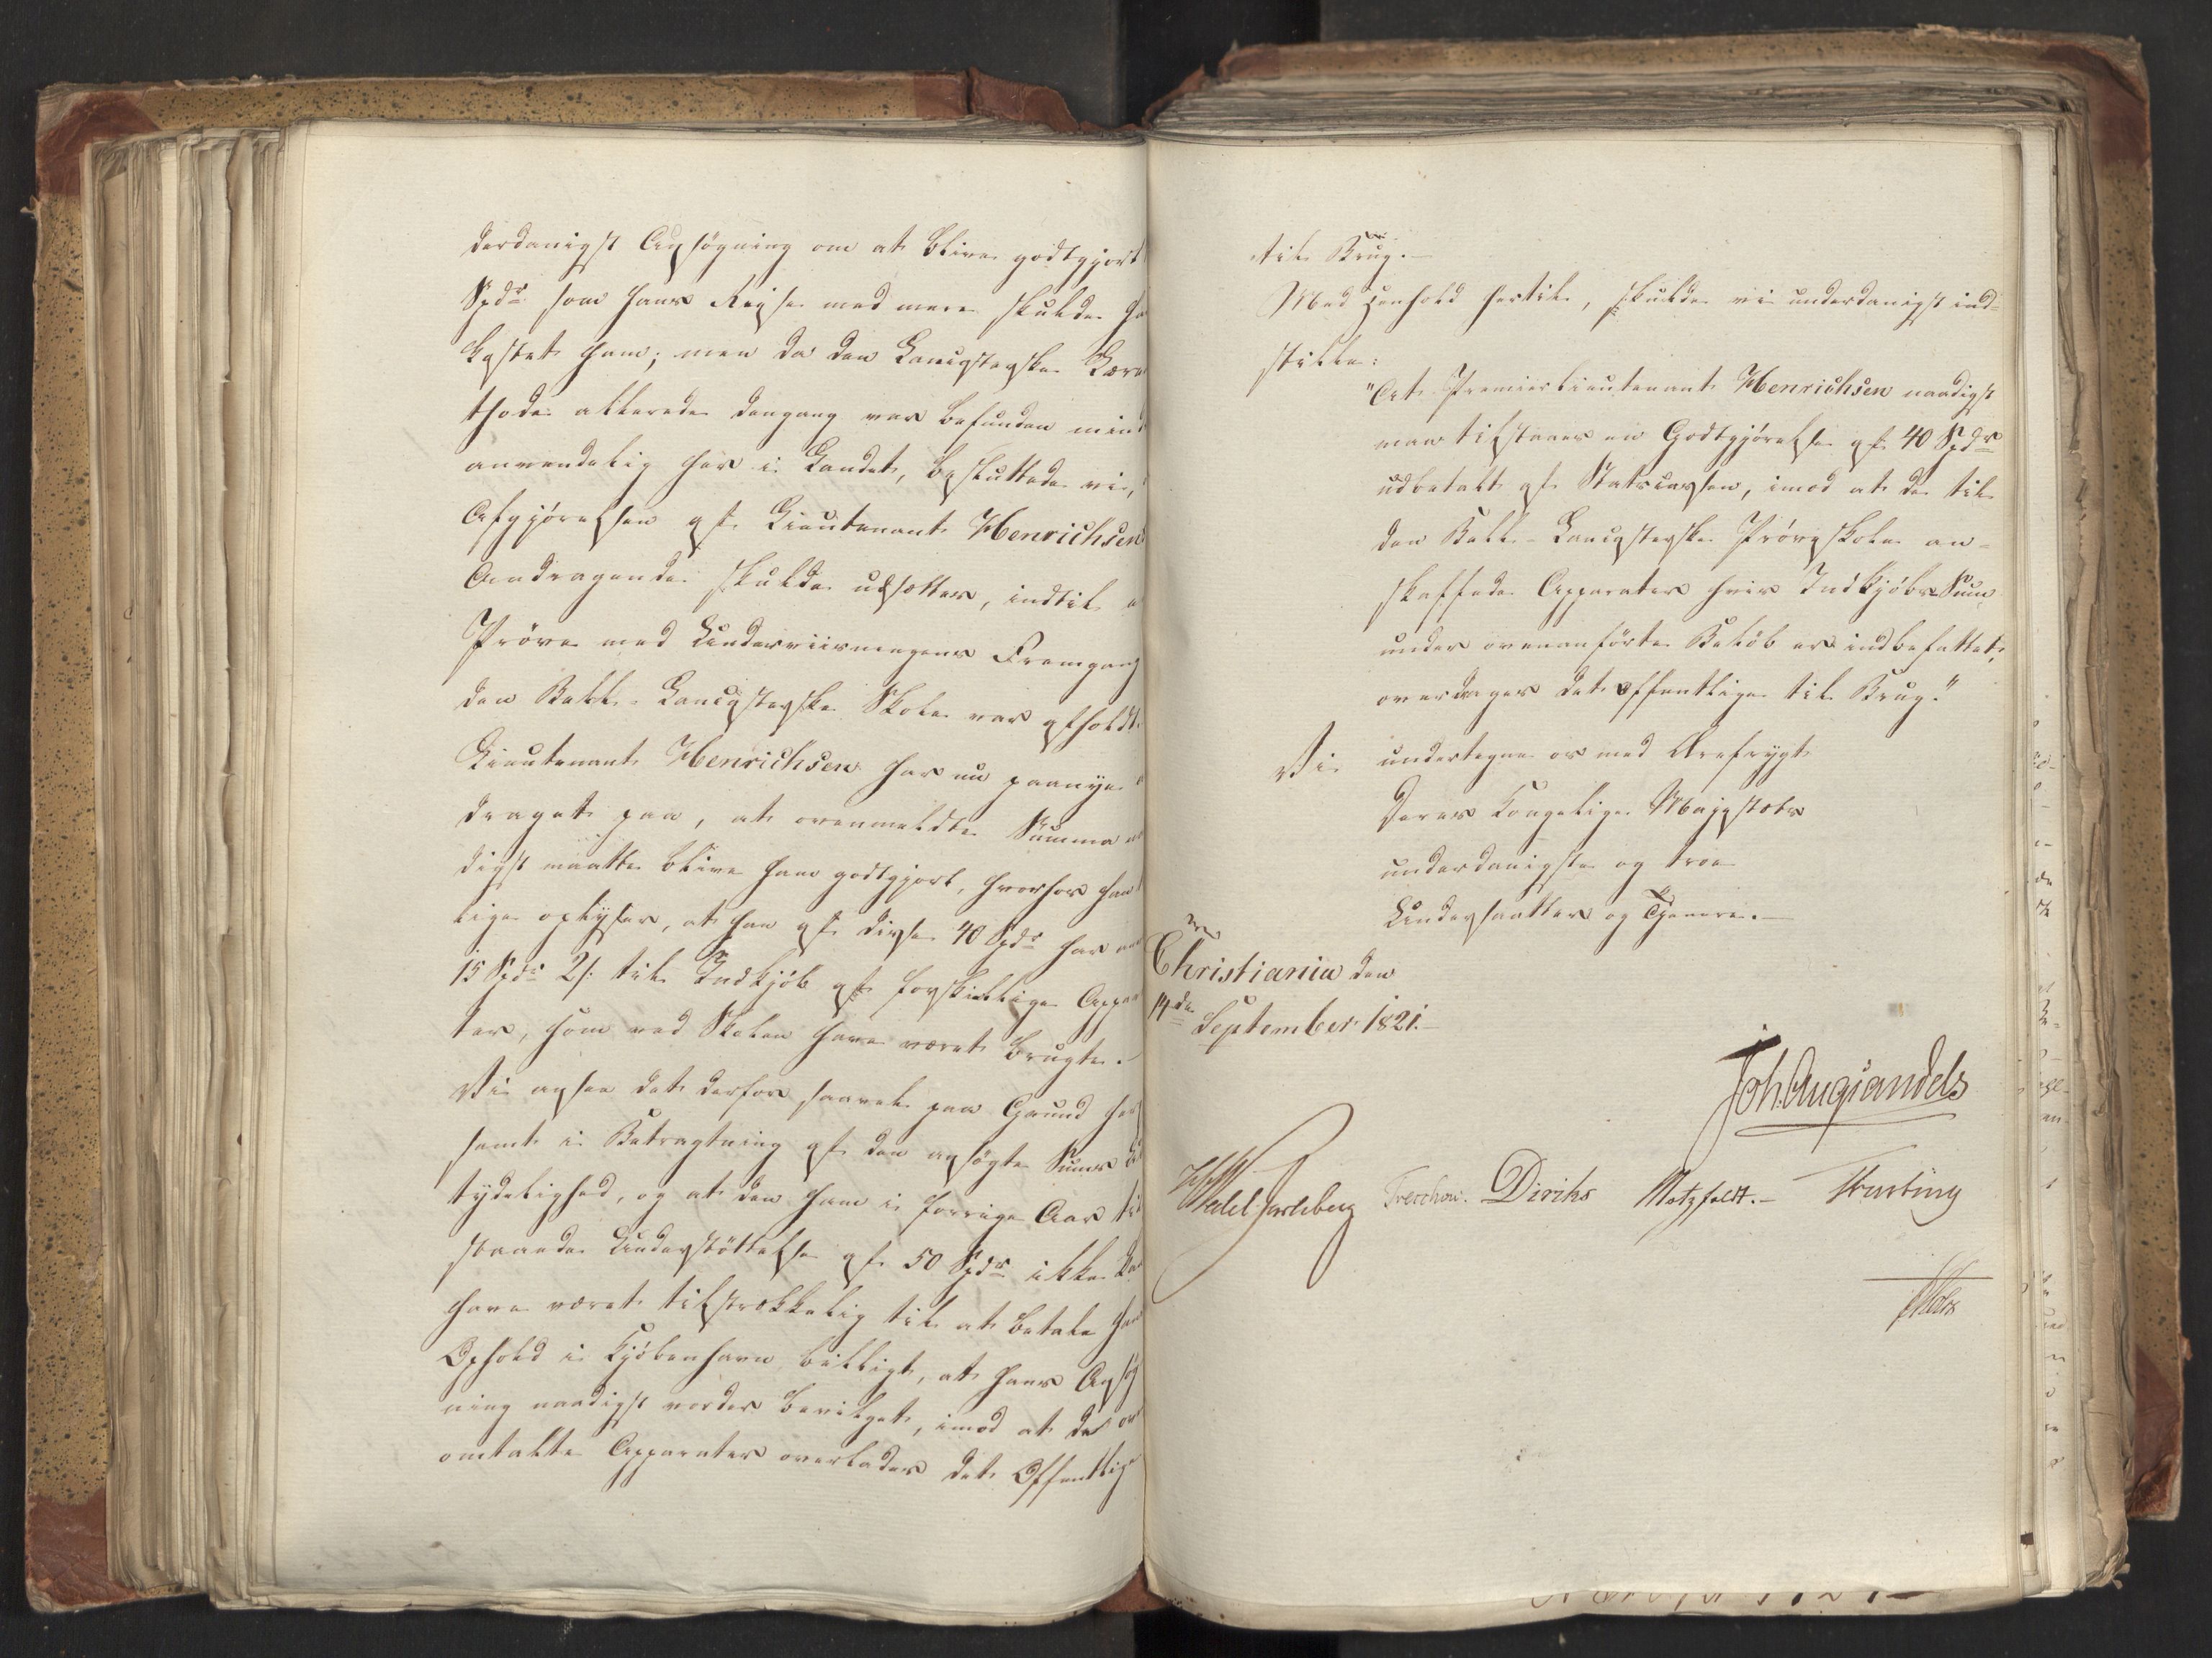 derdanigst Ansøgning om at blive godtgjort
Spdr som hans Reise med mere skulde ha
kostet ham; men da den Lancasterske Lære
thode allerede dengang var befunden mind
anvendelig her i Landet, besluttede vi,
Afgjørelsen af Lieutenant Henrichsens
Andragende skulde udsættes, indtil e
Prøve med Underviisningens Fremgang
den Bell-Lancasterske Skole var afholdt.
Lieutenant Henrichsen har nu paanye
draget paa, at ovenmeldte Summa
digst maatte blive ham godtgjort, hvorhos han
lige oplyser, at han af disse 40 Spdr har
15 Spdr 2 s: til Indkjøb af forskjellige Appa
ter, som ved Skolen have været brugte.
Vi ansee det derfor saavel paa Grund her
samt i Betragtning af den ansøgte Sums
tydelighed, og at den ham i forrige Aar til
staaede Understøttelse af 50 Spdr ikke ka
have været tilstrækkelig til at betale hans
Ophold i Kjøbenhavn billigt, at hans Ansøg
ning naadigst vorder bevilget, imod at de ov
omtalte Apparater overlades det Offentlige
til Brug.-
Med Henhold hertil, skulde vi underdanigst ind-
stille:
"At Premierlieutenant Henrichsen naadigst
maa tilstaaes en Godtgjørelse af 40 Spdr
udbetalt af Statscassen, imod at de til
den Bell-Lancasterske Prøveskole an-
skaffede Apparater hvis Indkjøbs-Sum
under ovenanførte Beløb er indbefattet,
overdrages det offentlige til Brug."
Vi undertegne os med Ærefrygt
Deres Kongelige Majestæts
underdanigste og troe
Undersaatter og Tjenere.-
Christiania den
14de September 1821.-
Joh. Aug. Sandels
Wedel Jarlsberg Treschow. Diriks Motzfeldt.-
Holst